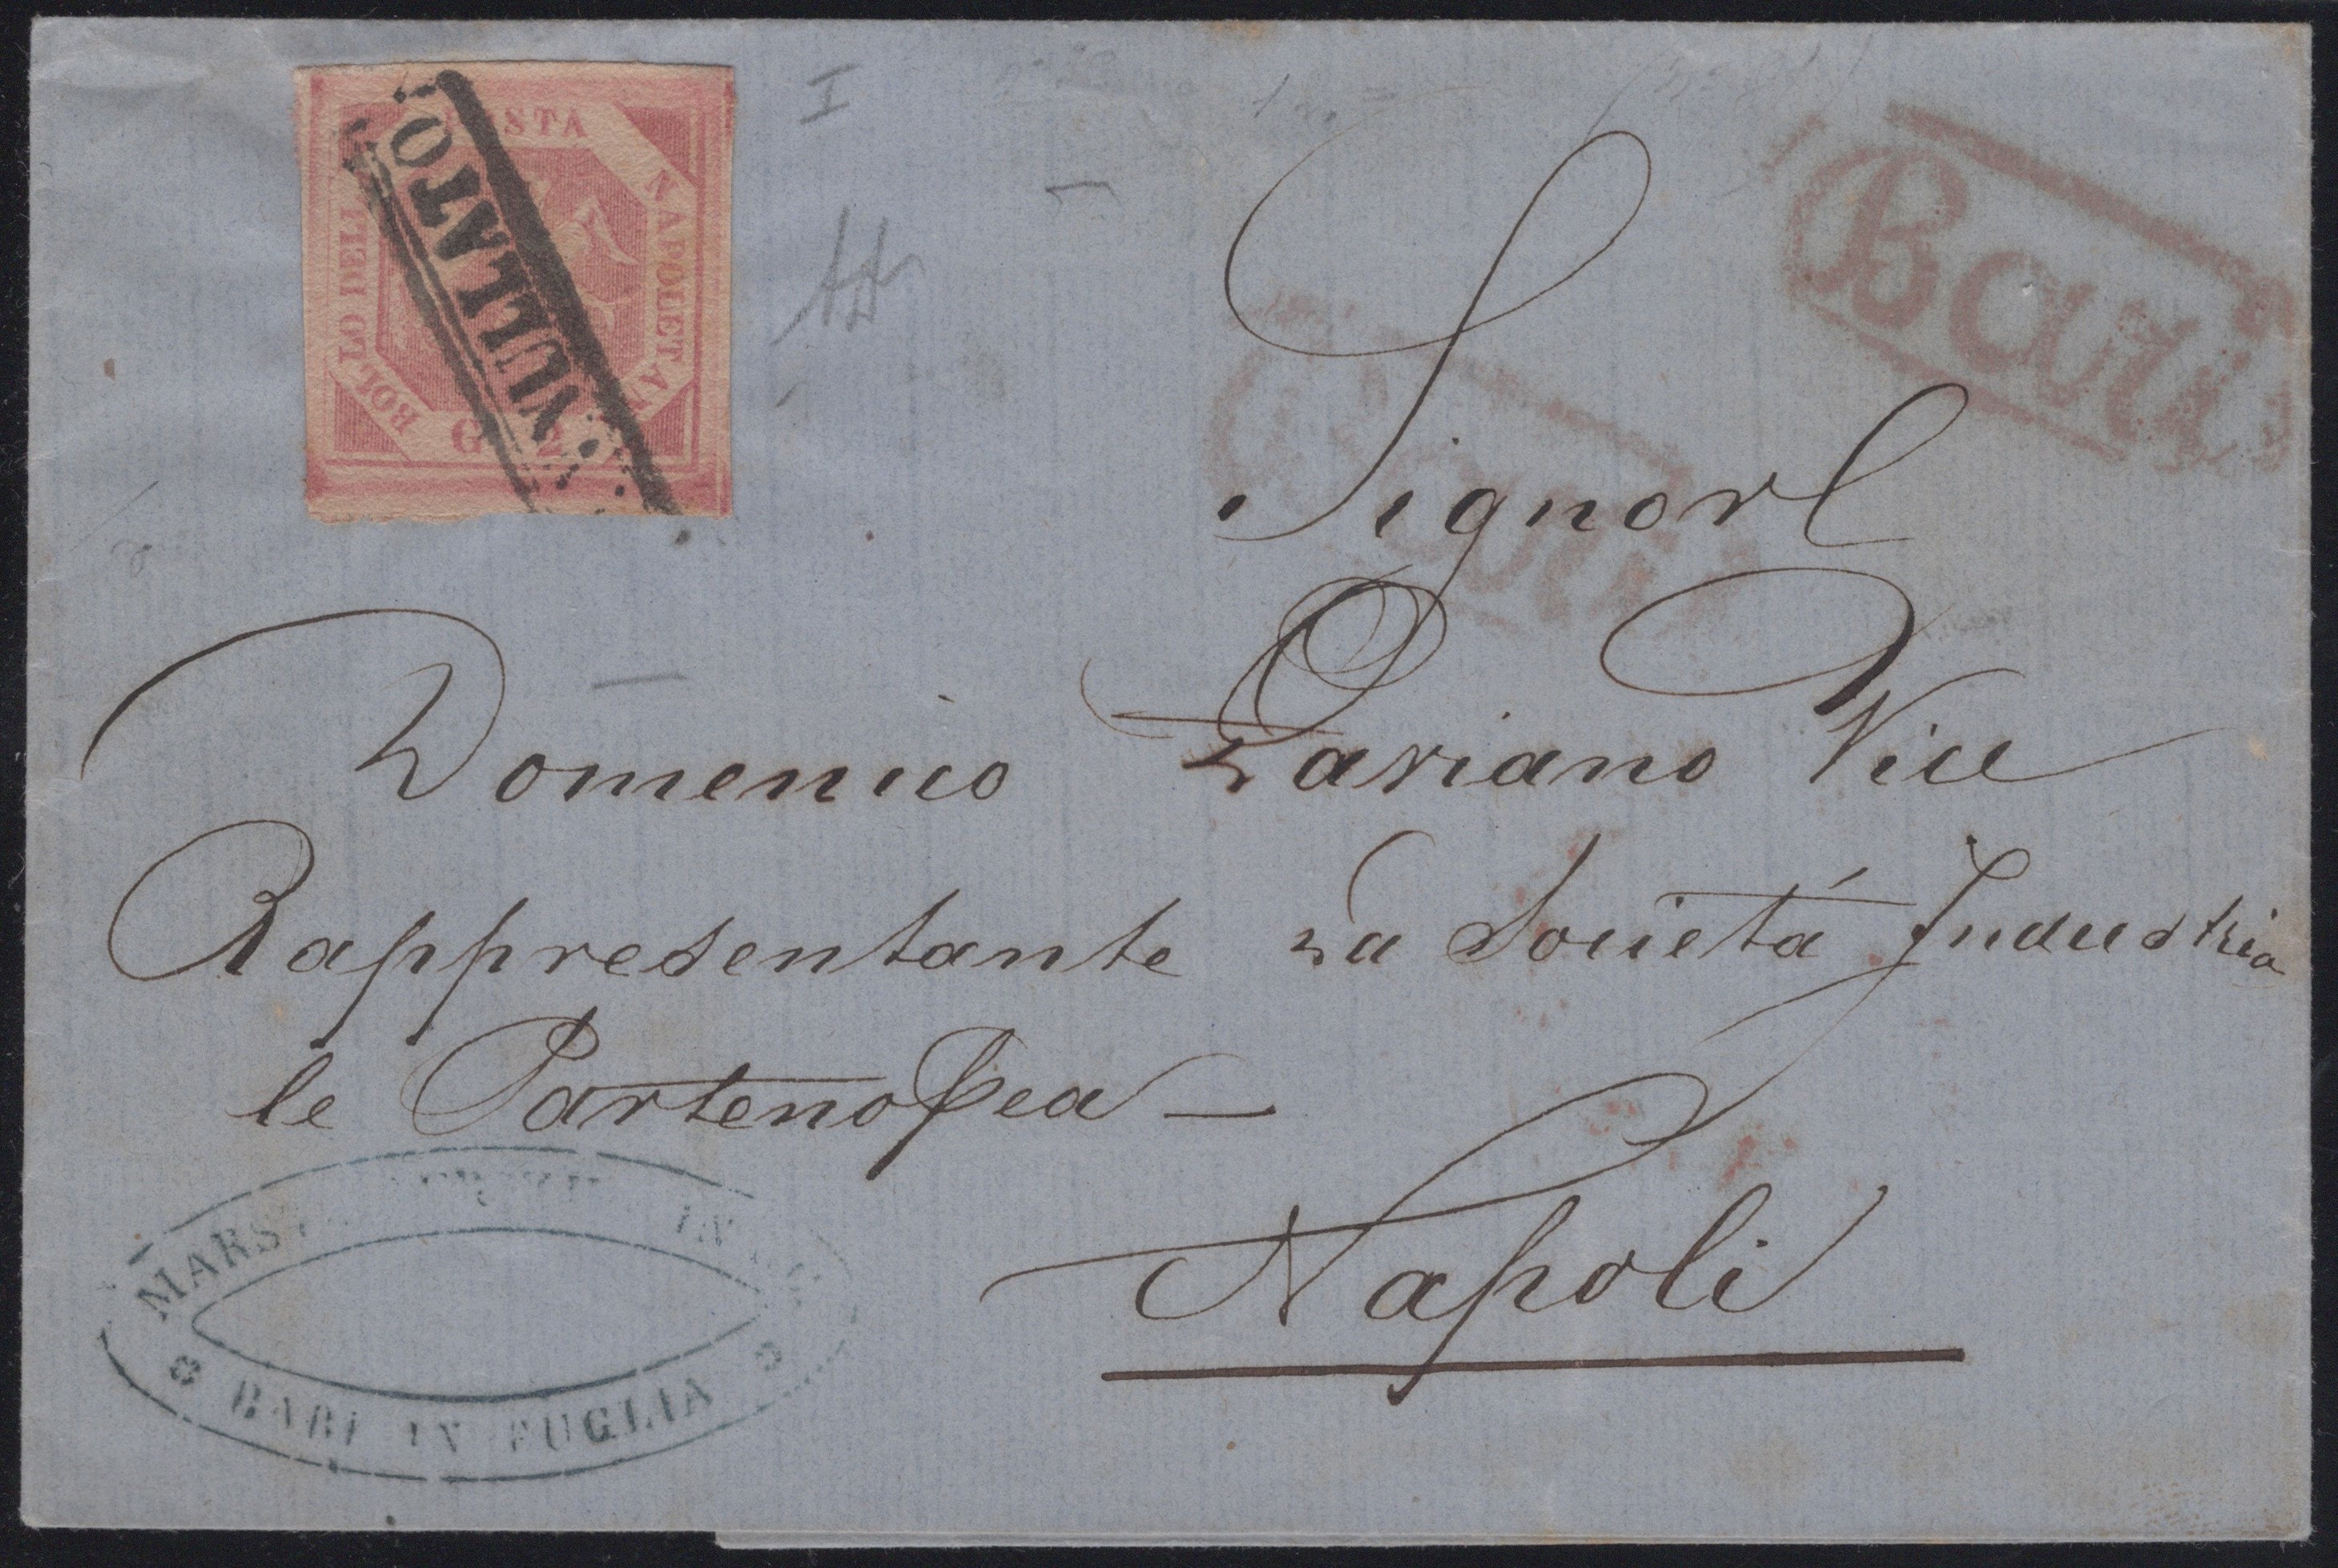 BOLLO DELLA POSTA NAPOLETANA
G 2
ANNULLATO
Bari
Bari
Signor
Domenico Pariano Vice
Rappresentante la Societá Industria
le Partenopea —
Napoli
BARI IN PUGLIA